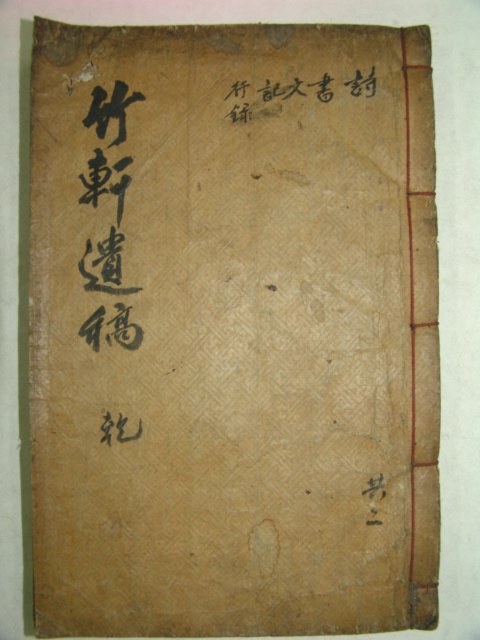 竹軒遺稿 乾
詩 書 文 記 行錄
共二